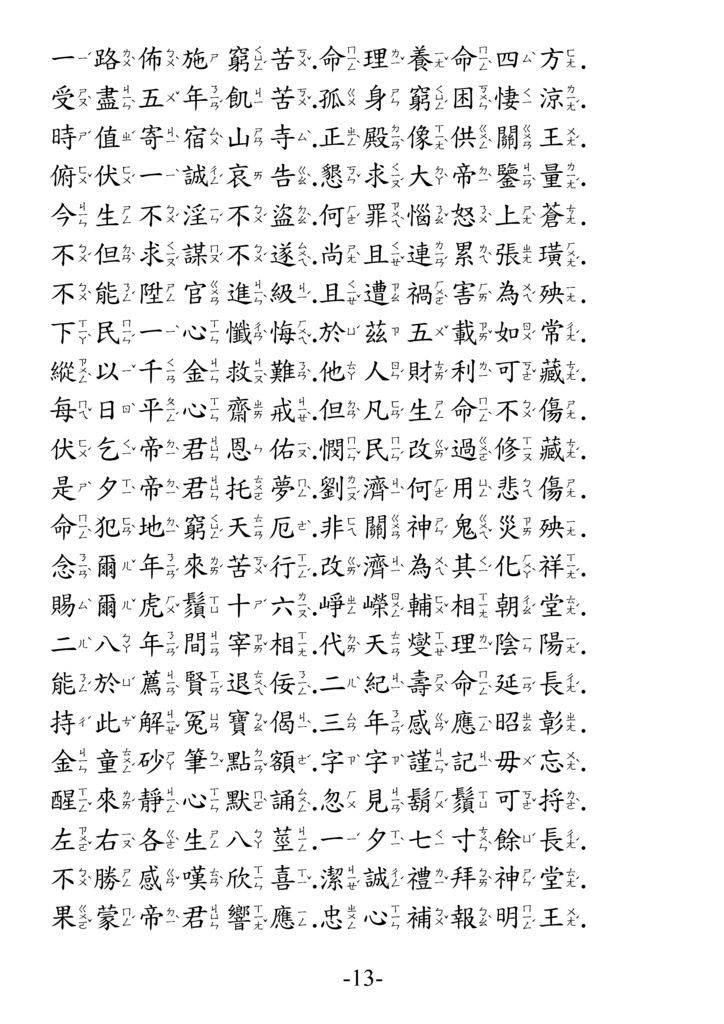 一路佈施窮苦.命理養命四方.
受盡五年飢苦.孤身窮困悽涼.
時值寄宿山寺.正殿像供關王.
俯伏一誠哀告.懇求大帝鑒量.
今生不淫不盜.何罪惱怒上蒼.
不但求謀不遂.尚且連累張璜.
不能陞官進級.且遭禍害為殃.
下民一心懺悔.於茲五載如常.
縱以千金救難.他人財利可藏.
每日平心齋戒.但凡生命不傷.
伏乞帝君恩佑.憫民改過修藏.
是夕帝君托夢.劉濟何用悲傷.
命犯地窮天厄.非關神鬼災殃.
念爾年來苦行.改濟為其化祥.
賜爾虎鬚十六.崢嶸輔相朝堂.
二八年間宰相.代天燮理陰陽.
能於薦賢退佞.二紀壽命延長.
持此解冤寶偈.三年感應昭彰.
金童砂筆點額.字字謹記毋忘.
醒來靜心默誦.忽見鬍鬚可捋.
左右各生八莖.一夕七寸餘長.
不勝感嘆欣喜.潔誠禮拜神堂.
果蒙帝君響應.忠心補報明王.
-13-